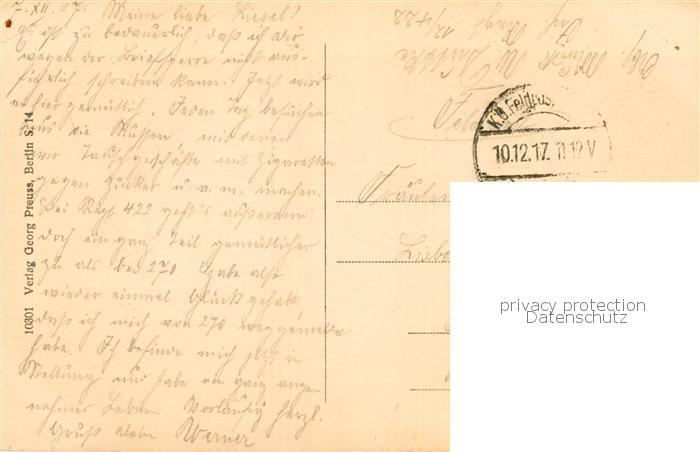 7. XII. 17. Meine liebe Liesel!
Es ist zu bedauerlich, daß ich Dir
wegen der Briefsperre nicht aus-
führlich schreiben kann. Jetzt wird
es hier gemütlich. Jeden Tag besuchen
uns die Russen, mit denen
wir Tauschgeschäfte mit Zigaretten
gegen Zucker u. a. m. machen.
Bei Regt. 422 geht's
doch ein ganz Teil gemütlicher
zu als bei 270. Habe also
wieder einmal Glück gehabt
daß ich mich von 270 weggemeldet
habe. Ich befinde mich jetzt in
Stellung und habe ein ganz ange-
nehmes Leben. Vorläufig herzl.
Gruß dein Werner
10301 Verlag Georg Preuss, Berlin S. 14.
Inf. Regt. 12/422
K.D. Feldpost
10.12.17. 11-12 V
Fräulein
privacy protection
Datenschutz